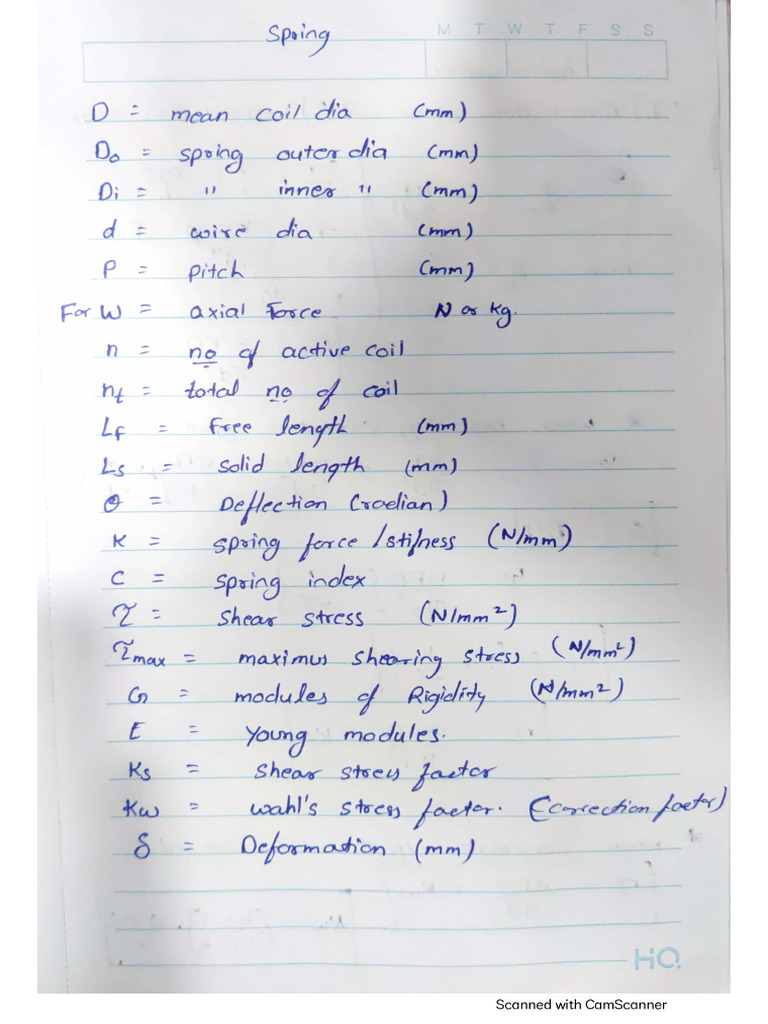 Spring
M T W T F S S
D = mean coil dia (mm)
Do = spring outer dia (mm)
Di = " inner " (mm)
d = wire dia (mm)
P = pitch (mm)
For W = axial Force N or kg.
n = no of active coil
nt = total no of coil
Lf = free length (mm)
Ls = solid length (mm)
θ = Deflection (radian)
K = spring force /stifness (N/mm)
C = spring index
τ = Shear stress (N/mm²)
τmax = maximus shearing stress (N/mm²)
G = modules of Rigidity (N/mm²)
E = Young modules.
Ks = Shear stress factor
Kw = wahl's stress factor. (correction factor)
δ = Deformation (mm)
HQ
Scanned with CamScanner